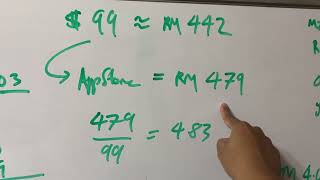 $ 99 ≈ RM 442
03
AppStore = RM 479
479
99
= 483
M 4.0